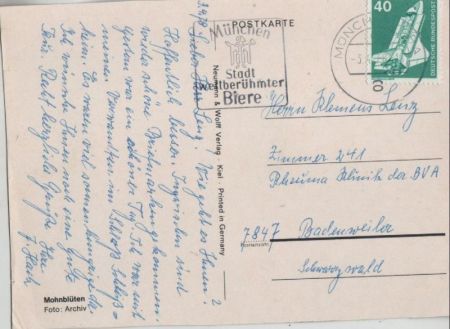 POSTKARTE
München
Stadt
weltberühmter
Biere
MÜNCHEN
40
DEUTSCHE BUNDESPOST
Herrn Klemens Lenz
Zimmer 241
Rheuma Klinik der BVA
7847 Badenweiler
Schwarzwald
Neumann & Wolff Verlag · Kiel · Printed in Germany
Lieber Herr Lenz! Wie geht es Ihnen?
Hoffentlich besser. Inzwischen sind
wieder schöne Briefmarken gekommen.
Gestern war ein schöner Tag. Ich war mit
meinen Verwandten im Schloss
heim. Es waren viel
Ich wünsche Ihnen noch eine gute
Kur. Recht herzliche Grüße Ihre
Mohnblüten
Foto: Archiv